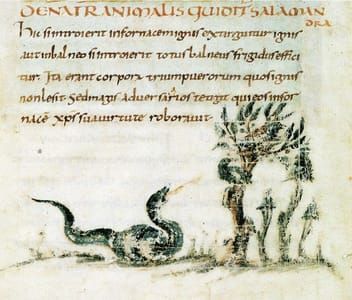 DENATRANIMALIS QUIDT SALAMAN
DRA
hic si introierit in fornacem ignis extinguitur ignis
aut in balneo si introierit totus balneus frigidus effici
tur. Ita erant corpora trium puerorum quos ignis
non lesit. Sed magis adversarios tetigit qui eos in for
nacē xps sua virtute roboravit